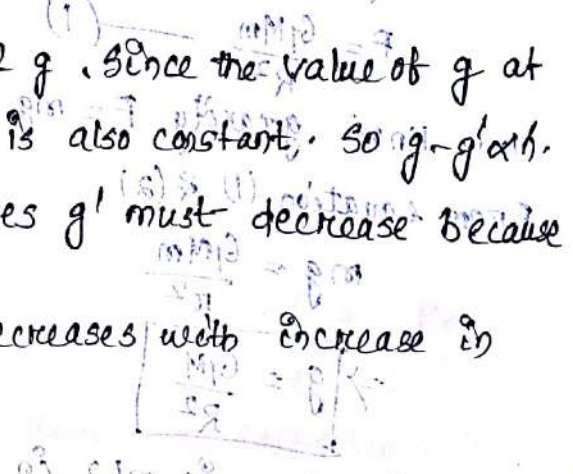 g. Since the value of g at
is also constant. So g-g'∝h.
es g' must decrease because
creases with increase in